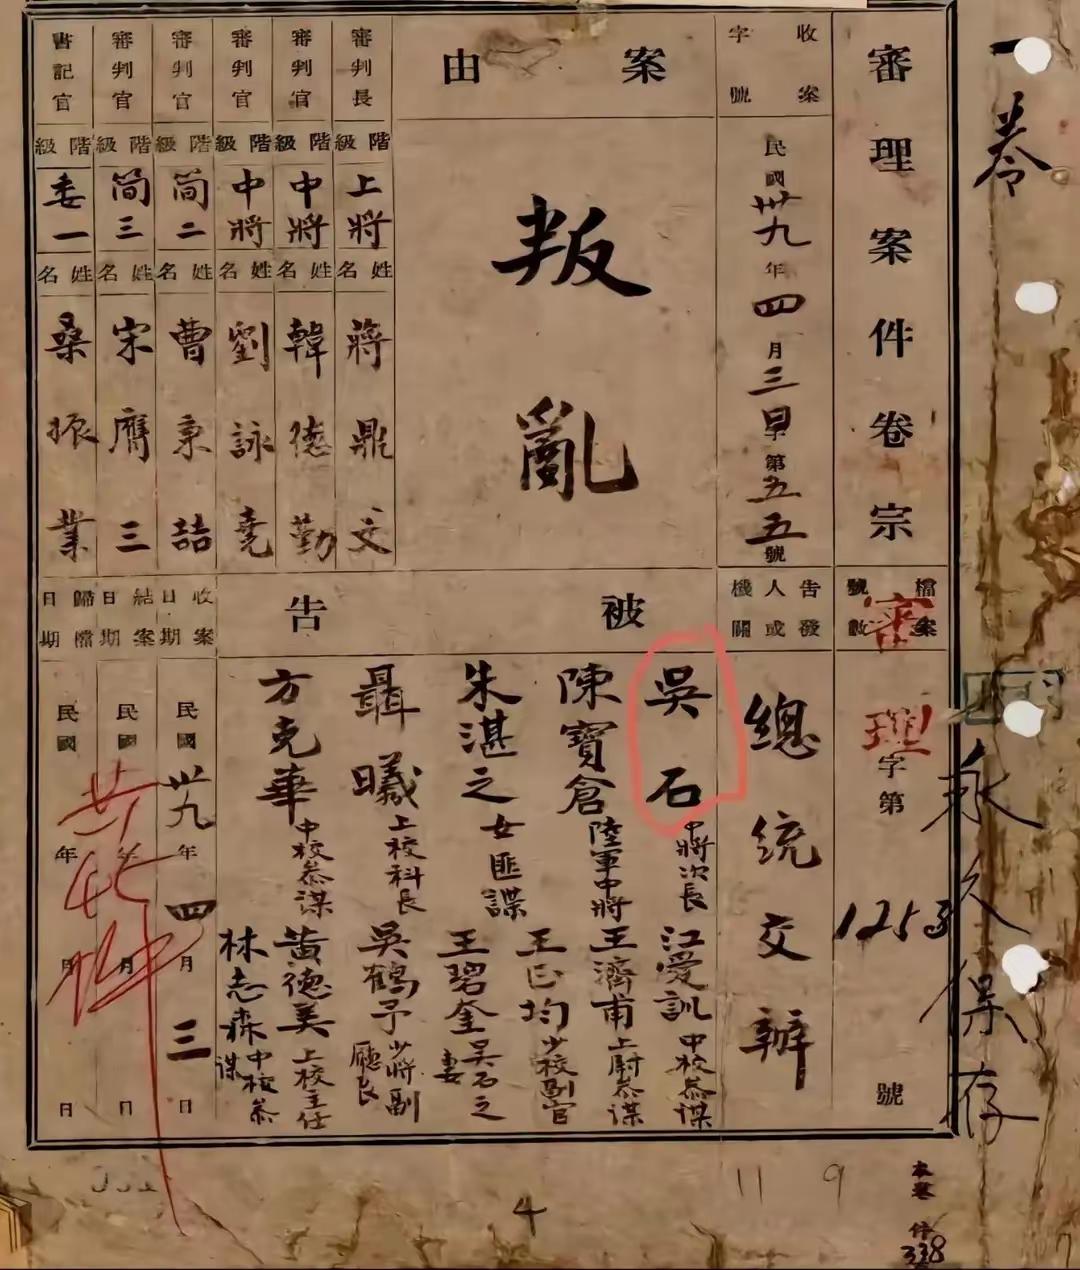 一卷
永久保存
審理案件卷宗
檔案號數
審理字第1253號
收案字號
民國卅九年四月三日第五五號
告發人或機關
總統交辦
案由
叛亂
被告
吳石 中將次長
陳寶倉 陸軍中將
朱湛之 女匪諜
聶曦 上校科長
方克華 中校參謀
江愛訓 中校參謀
王濟甫 上尉參謀
王正均 少校副官
王碧奎 吳石之妻
吳鶴予 少將副廳長
黃德美 上校主任
林志森 中校參謀
審判長
階級
上將
姓名
蔣鼎文
審判官
階級
中將
姓名
韓德勤
審判官
階級
中將
姓名
劉詠堯
審判官
階級
簡二
姓名
曹秉喆
審判官
階級
簡三
姓名
宋膺三
書記官
階級
委一
姓名
桑振業
收案日期
民國卅九年四月三日
結案日期
民國年月日
歸檔日期
民國年月日
本卷
件
338
9
11
4